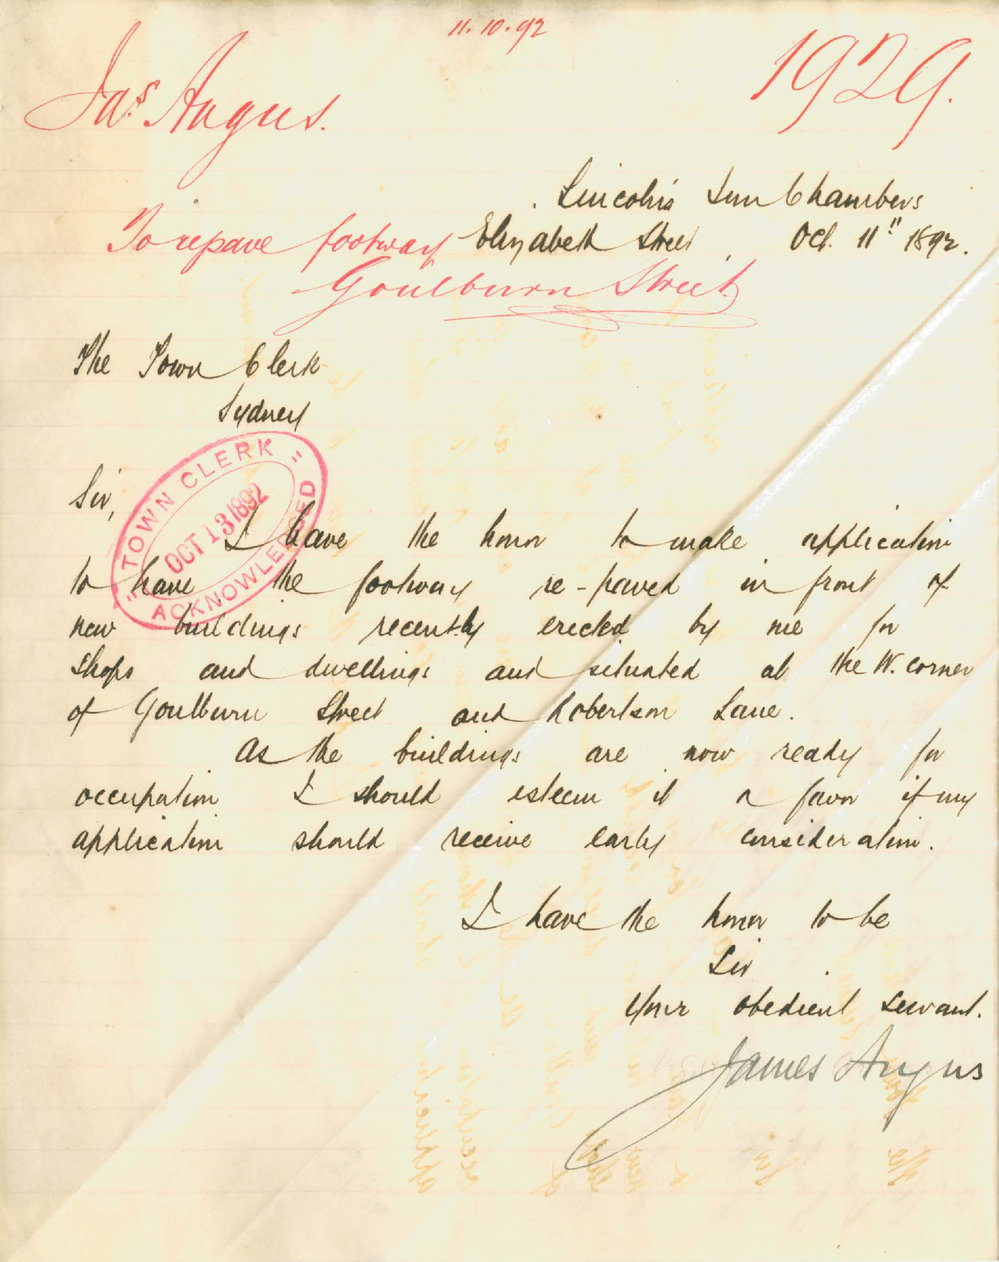 11.10.92
Jas. Angus.
1929.
Lincoln's Inn Chambers
To repave footway
Elizabeth Street, Oct. 11" 1892.
Goulburn Street
The Town Clerk
Sydney
"TOWN CLERK"
OCT 13 1892
ACKNOWLEDGED
Sir,
I have the honor to make application
to have the footway re-paved in front of
new buildings recently erected by me for
shops and dwellings and situated at the W. corner
of Goulburn Street and Robertson Lane.
As the buildings are now ready for
occupation I should esteem it a favor if my
application should receive early consideration.
I have the honor to be
Sir
Your obedient Servant.
James Angus